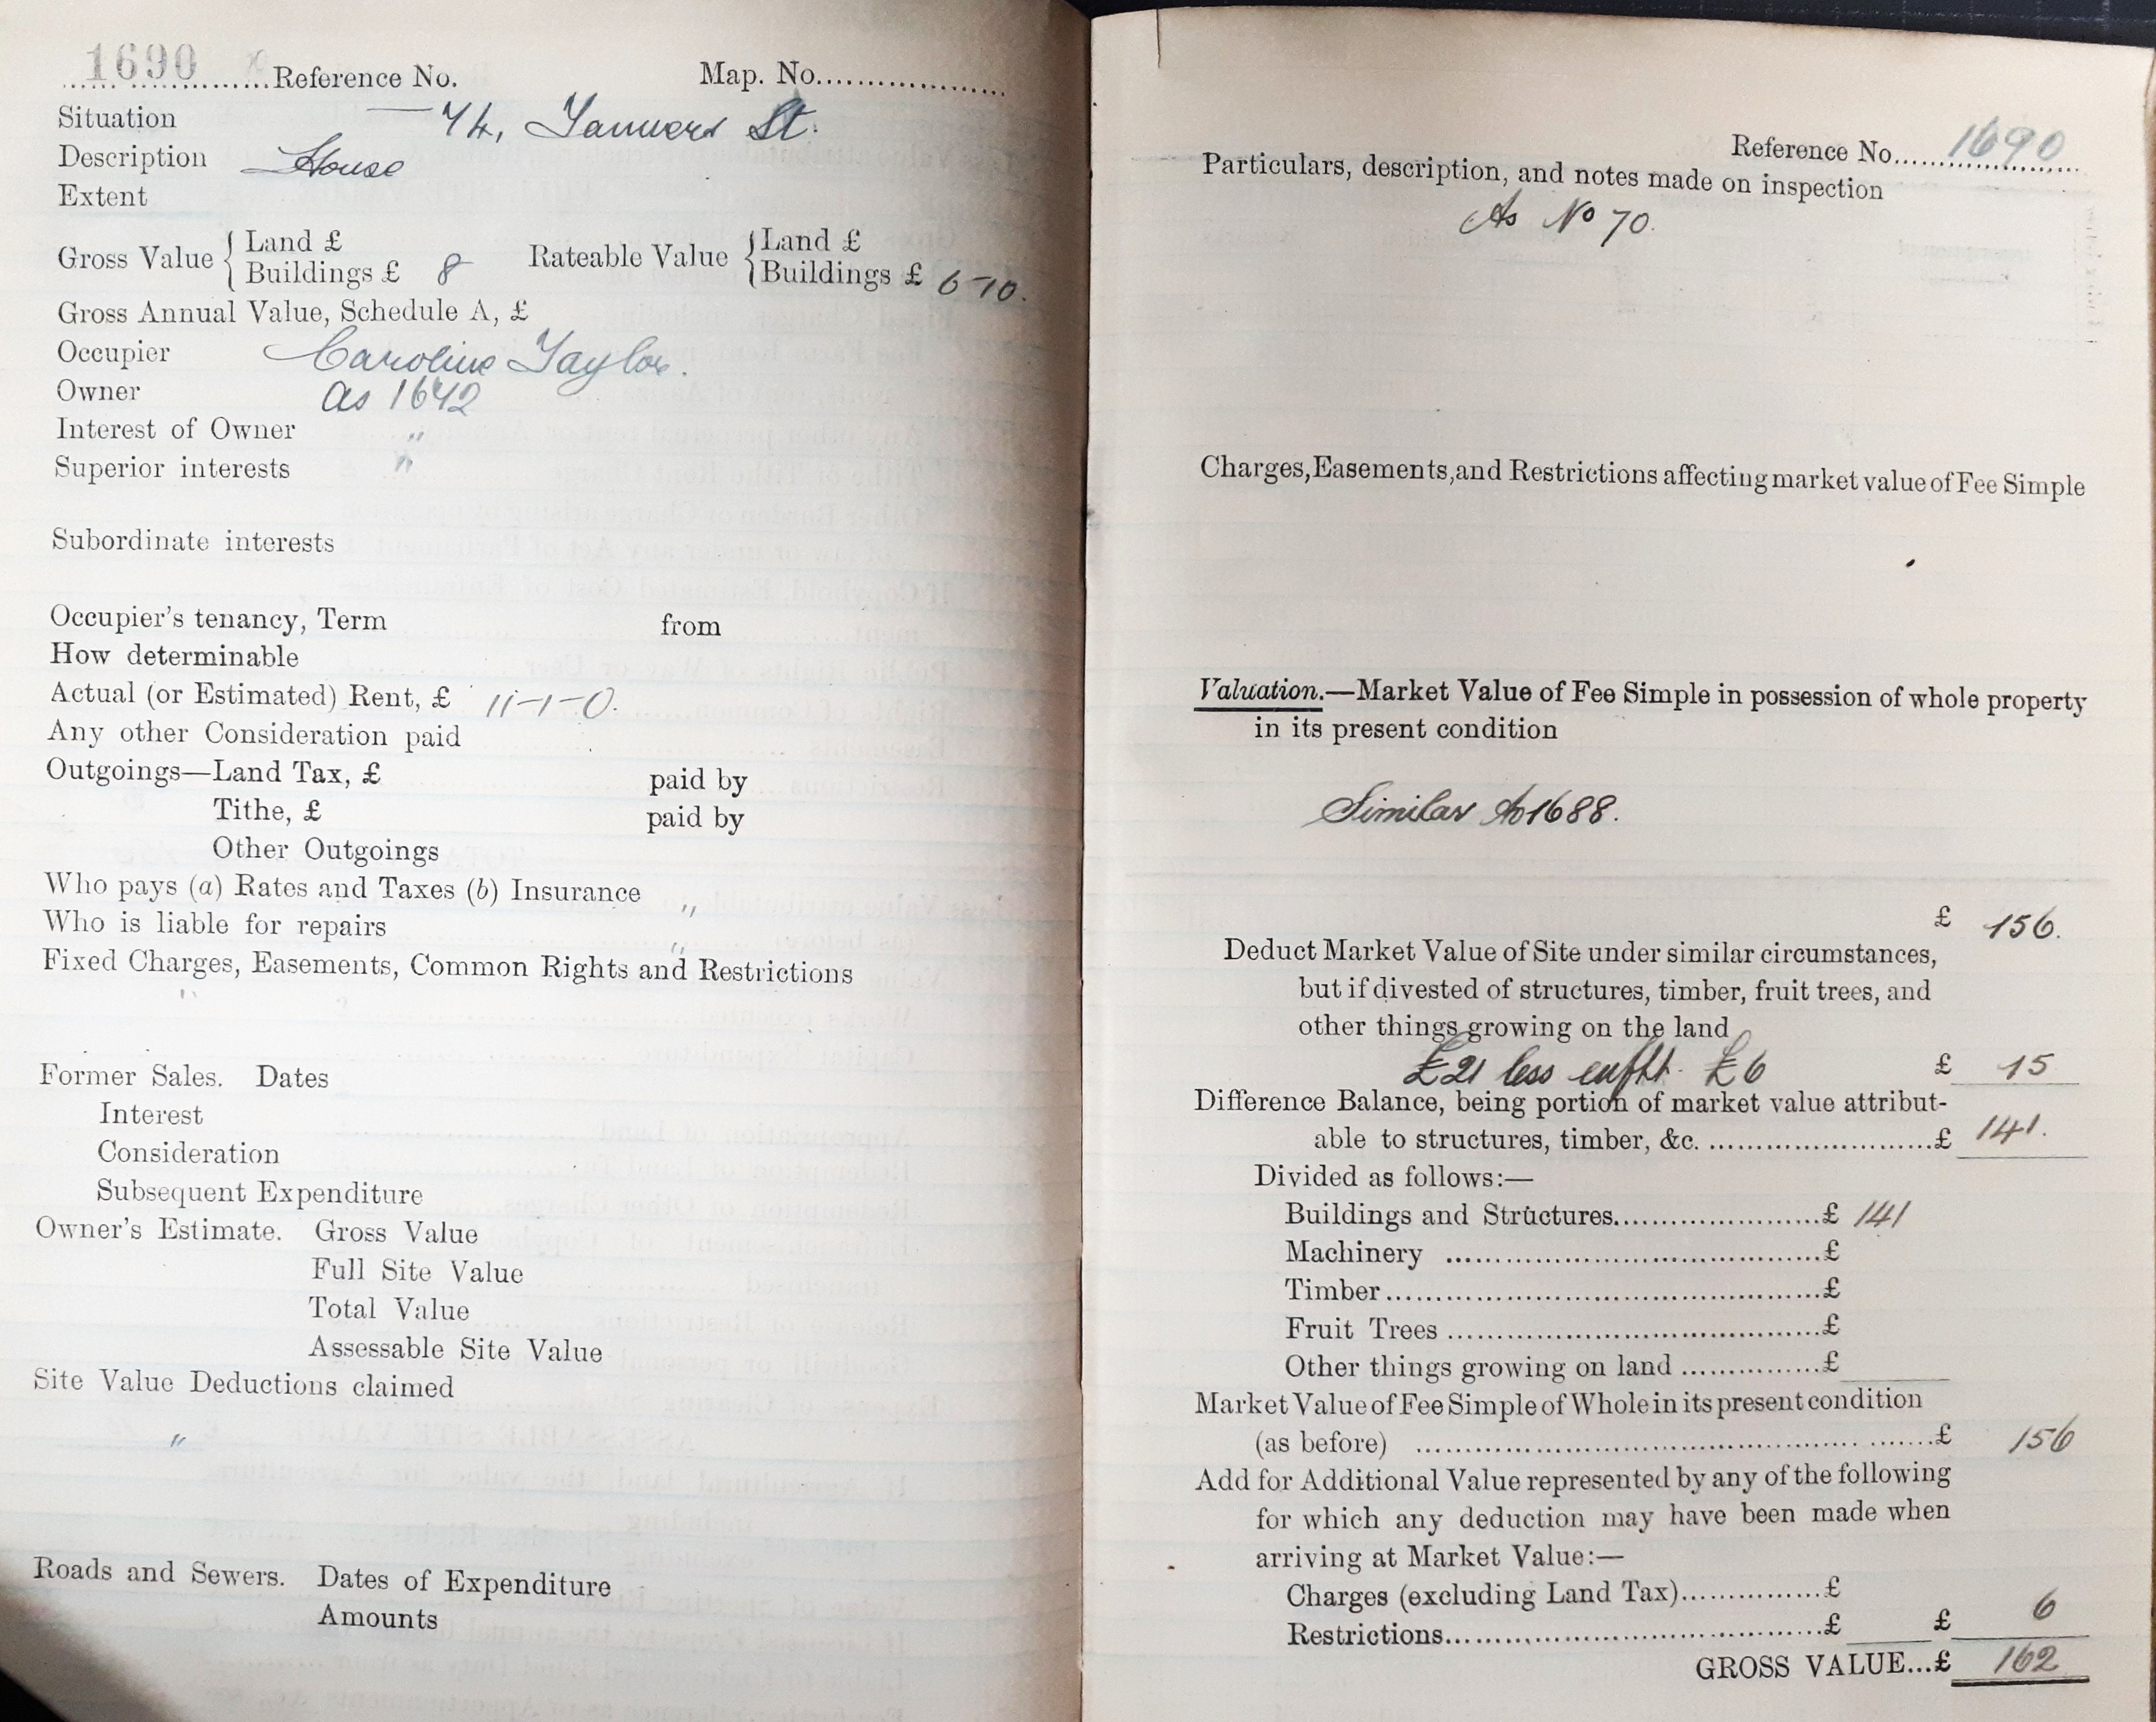 1690 Reference No. Map. No.
Situation 74, Tanners St.
Description House
Extent
Gross Value { Land £ Rateable Value { Land £
Buildings £ 8 Buildings £ 6-10.
Gross Annual Value, Schedule A, £
Occupier Caroline Taylor.
Owner as 1642
Interest of Owner "
Superior interests "
Subordinate interests
Occupier's tenancy, Term from
How determinable
Actual (or Estimated) Rent, £ 11-1-0.
Any other Consideration paid
Outgoings—Land Tax, £ paid by
Tithe, £ paid by
Other Outgoings
Who pays (a) Rates and Taxes (b) Insurance "
Who is liable for repairs "
Fixed Charges, Easements, Common Rights and Restrictions
"
Former Sales. Dates
Interest
Consideration
Subsequent Expenditure
Owner's Estimate. Gross Value
Full Site Value
Total Value
Assessable Site Value
Site Value Deductions claimed
"
Roads and Sewers. Dates of Expenditure
Amounts
Reference No. 1690
Particulars, description, and notes made on inspection
As No 70.
Charges, Easements, and Restrictions affecting market value of Fee Simple
Valuation.—Market Value of Fee Simple in possession of whole property
in its present condition
Similar to 1688.
£ 156.
Deduct Market Value of Site under similar circumstances,
but if divested of structures, timber, fruit trees, and
other things growing on the land
£21 less £6 £ 15
Difference Balance, being portion of market value attribut-
able to structures, timber, &c. £ 141.
Divided as follows:—
Buildings and Structures £ 141
Machinery £
Timber £
Fruit Trees £
Other things growing on land £
Market Value of Fee Simple of Whole in its present condition
(as before) £ 156
Add for Additional Value represented by any of the following
for which any deduction may have been made when
arriving at Market Value:—
Charges (excluding Land Tax) £
Restrictions £ £ 6
GROSS VALUE...£ 162